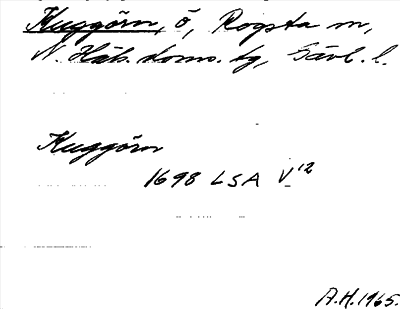 Kuggörn, ö, Rogsta sn,
N. Häls. doms. fg, Gävl. l.
Kuggörn
1698 LSA V 12
A.H. 1965.